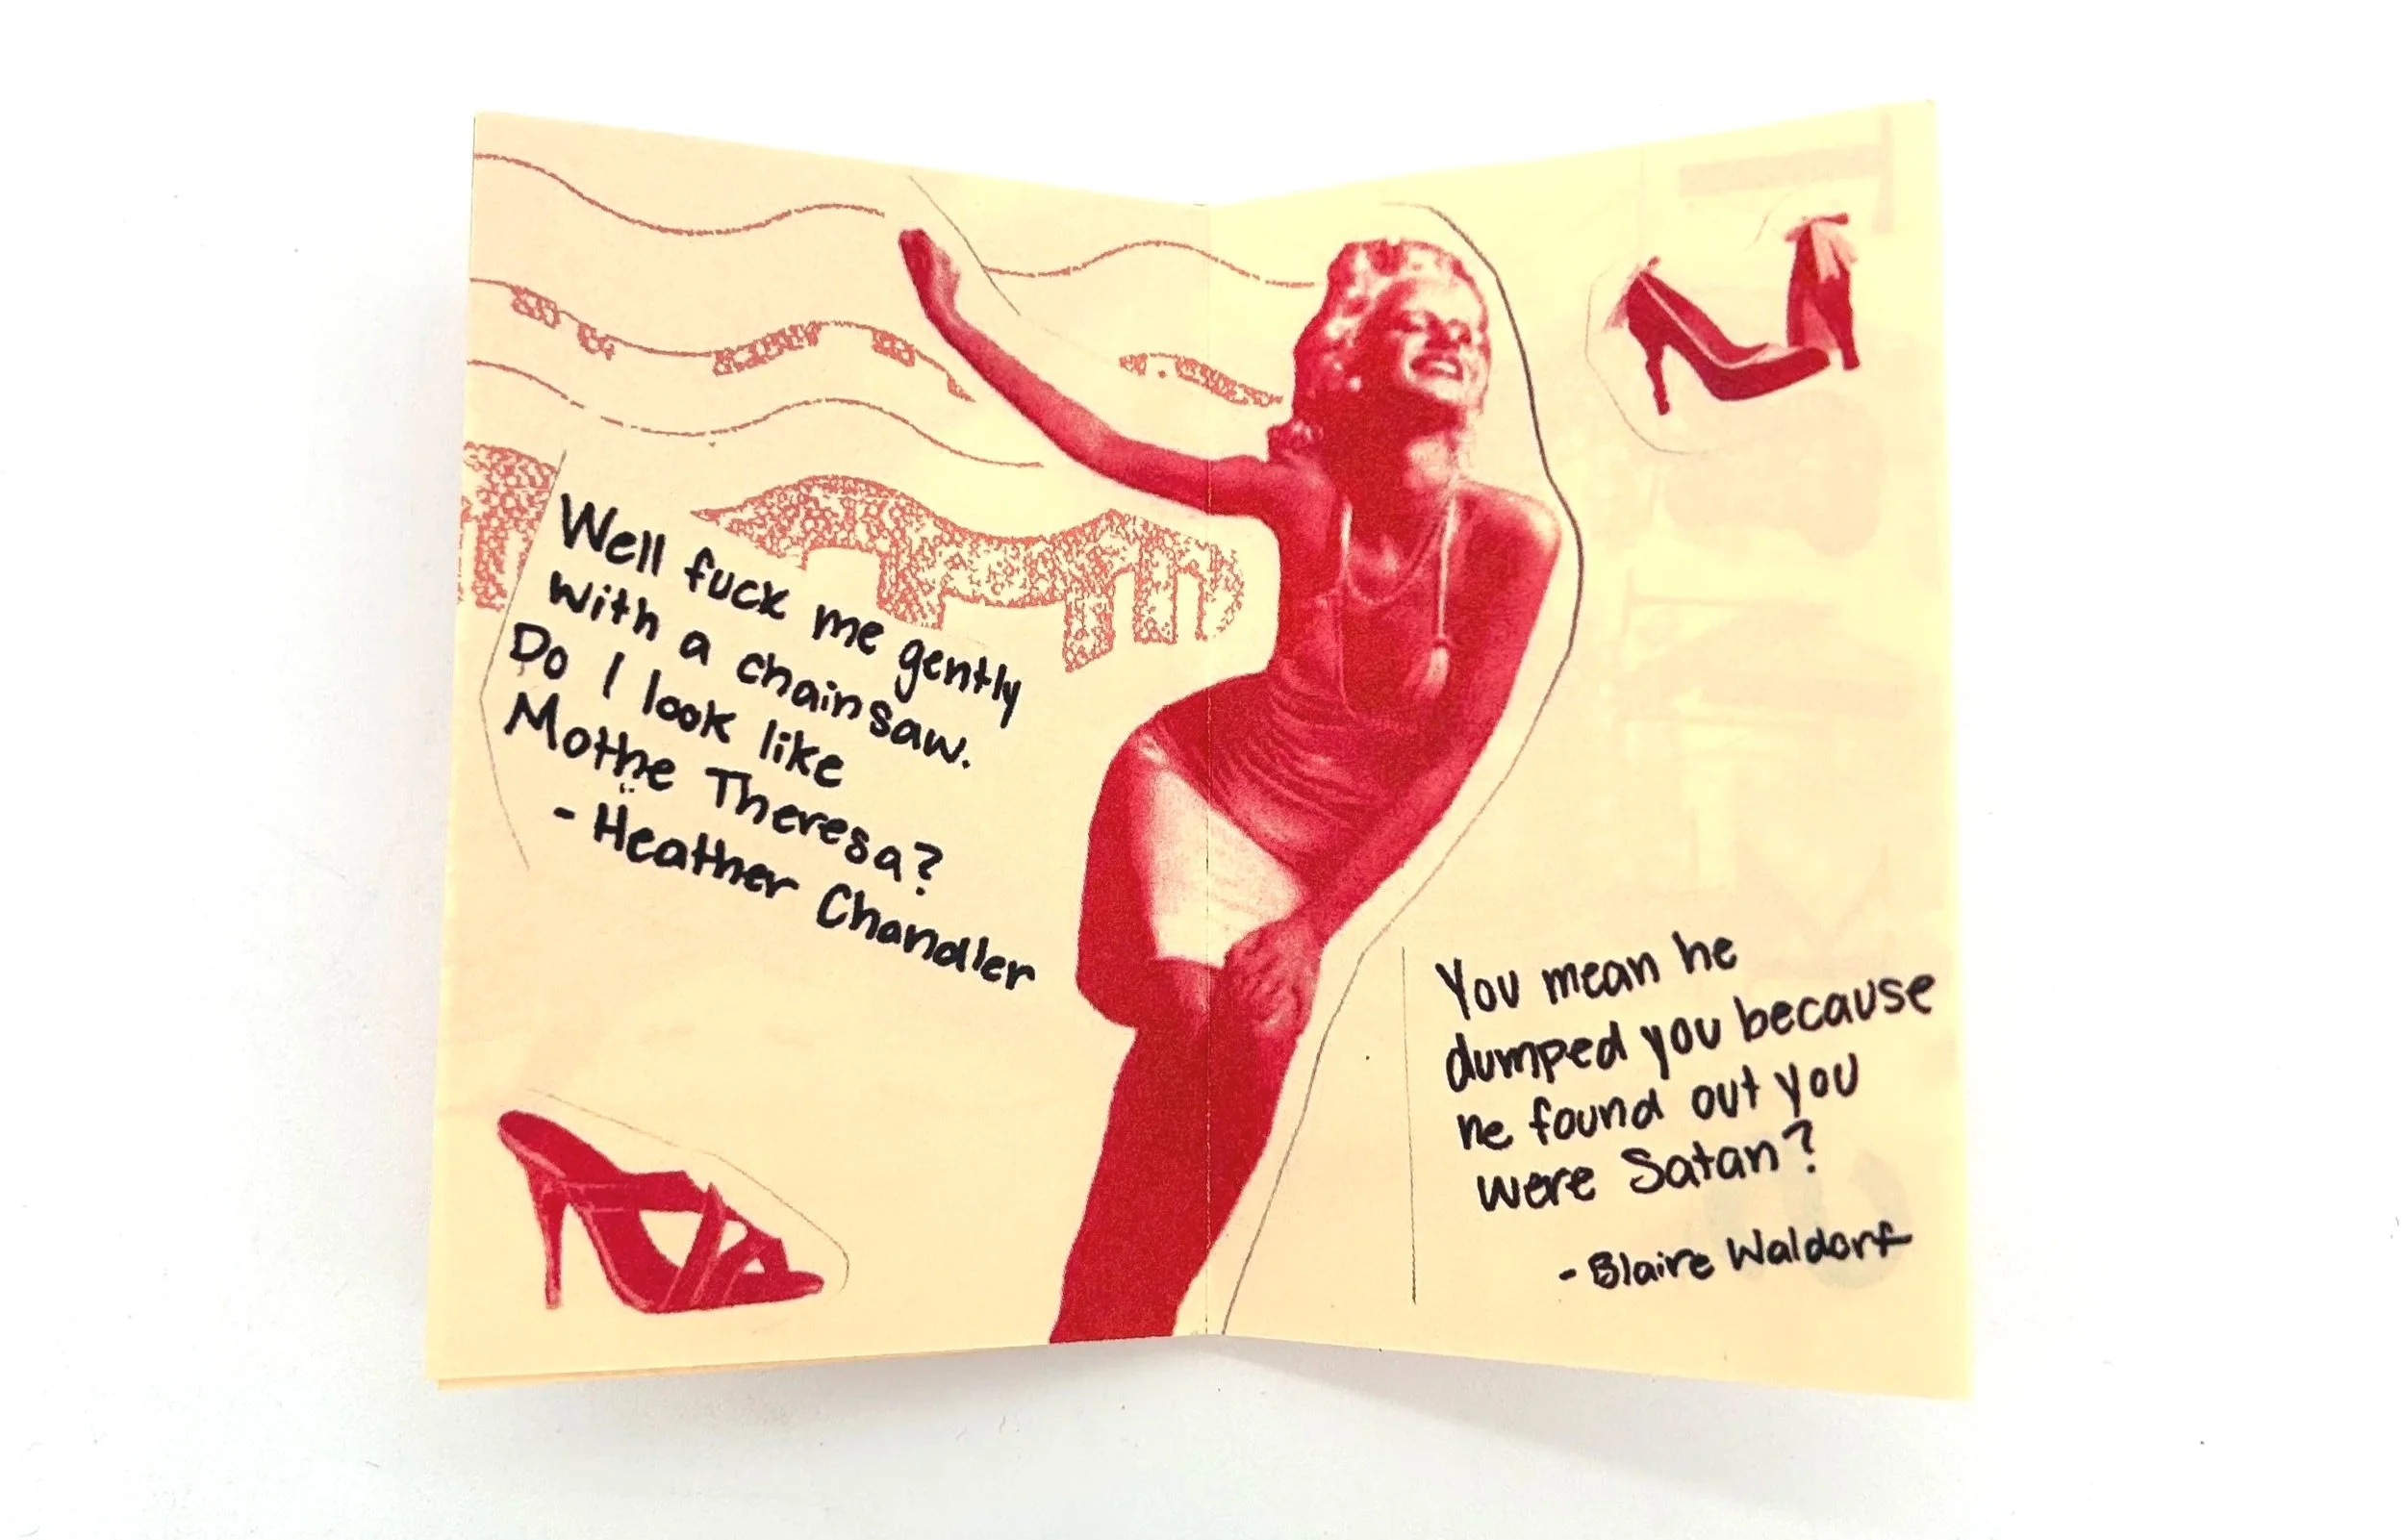 Well fuck me gently
with a chainsaw.
Do I look like
Mothe Theresa?
- Heather Chandler
You mean he
dumped you because
he found out you
were Satan?
- Blaire Waldorf